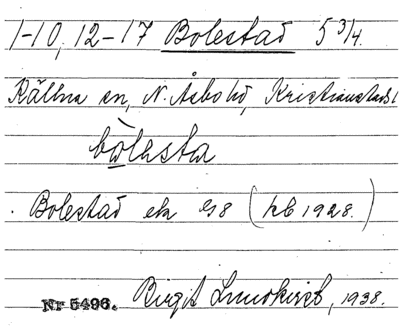 1-10, 12-17 Bolestad 5 3/4.
Källna sn, N. Åsbo hd, Kristianstads l
bòlesta
. Bolestad ek G8 (kb 1928.)
Nr 5496. Birgit Lundkvist, 1938.